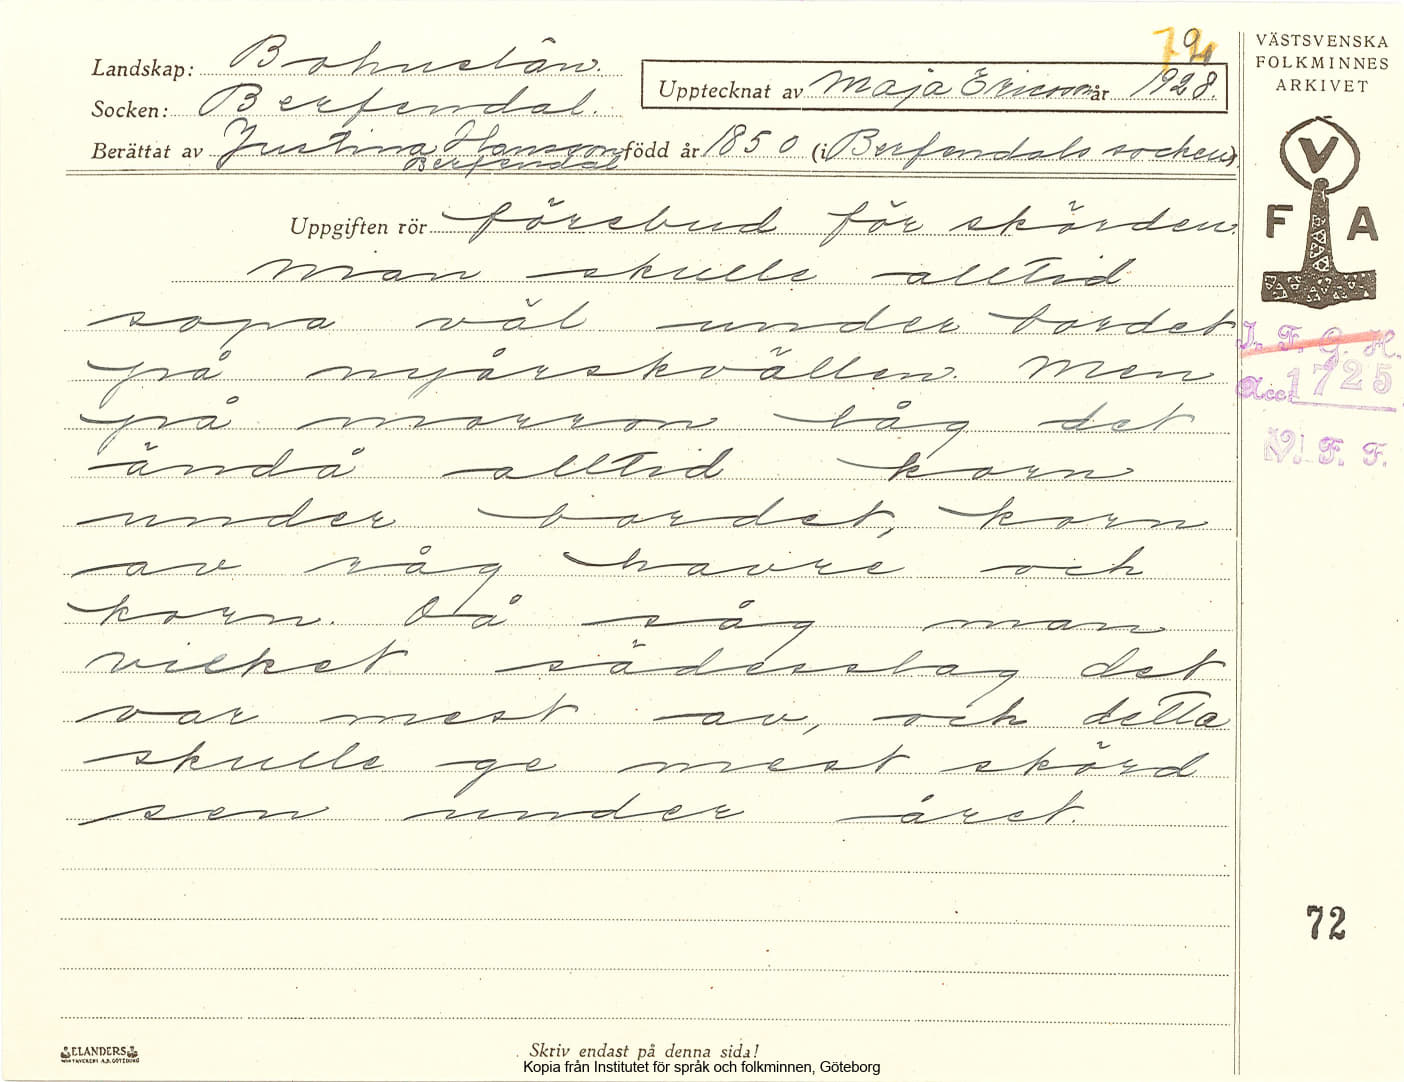 VÄSTSVENSKA
FOLKMINNES
ARKIVET
Landskap: Bohuslän.
Upptecknat av Maja Ericson år 1928.
Socken: Berfendal.
Berättat av Justina Hansson född år 1850 (i Berfendals socken).
Berfendal
V
F A
Uppgiften rör förebud för skörden.
Man skulle alltid
sopa väl under bordet
på nyårskvällen. Men
på morron låg det
ändå alltid korn
under bordet, korn
av råg havre och
korn. Då såg man
vilket sädesslag det
var mest av, och detta
skulle ge mest skörd
sen under året.
I. F. G. H.
Acc. 1725
V. F. F.
72
ELANDERS
Skriv endast på denna sida!
Kopia från Institutet för språk och folkminnen, Göteborg